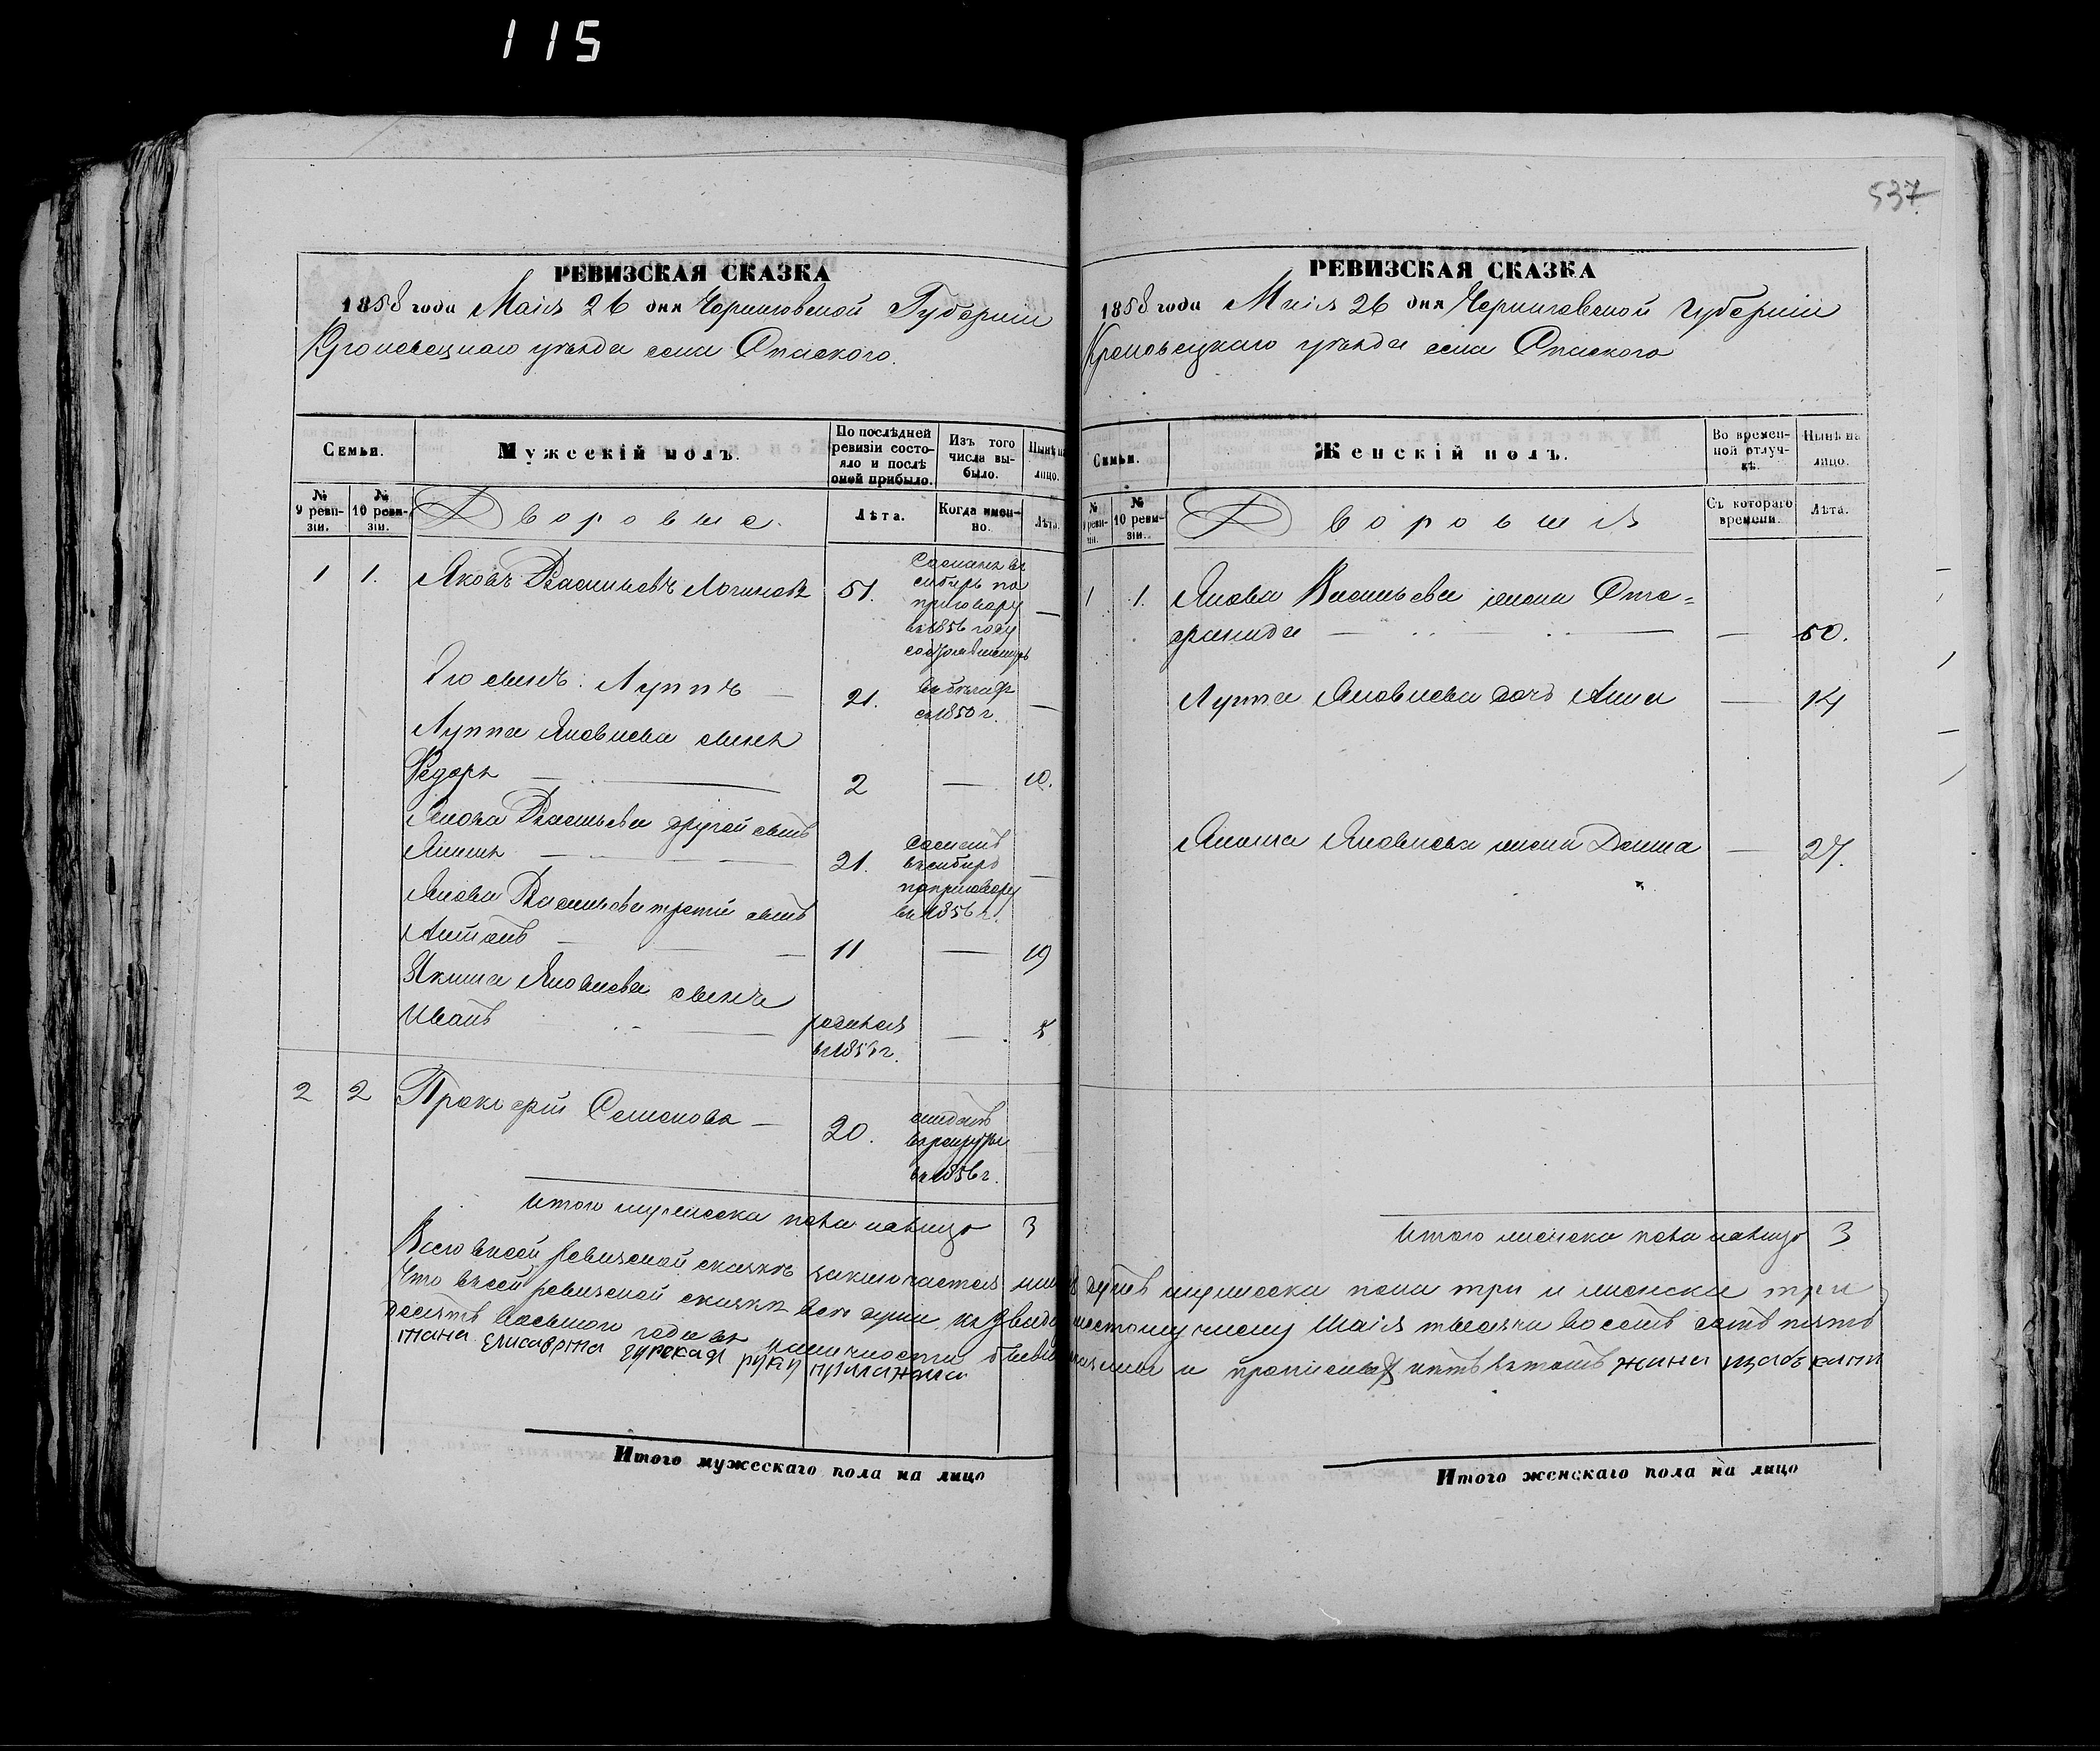 115
537
РЕВИЗСКАЯ СКАЗКА
1858 года Маія 26 дня Черниговской Губерніи
Кролевецкаго уѣзда села Спаского.
Семьи.
Мужескій полъ.
По послѣдней ревизіи состояло и послѣ оной прибыло.
Изъ того числа выбыло.
Нынѣ на лицо.
№ 9 ревизіи.
№ 10 ревизіи.
Дворовые.
Лѣта.
Когда именно.
Лѣта.
1 1. Яковъ Васильевъ Логиновъ 51. Сосланъ въ сибирь по приговору въ 1856 году —
Его сынъ: Луппъ — 21. въ бѣгахъ съ 1850 г. —
Луппа Яковлева сынъ
Федоръ — 2 — 10.
Якова Васильева другой сынъ
Якимъ — 21. Сосланъ въ сибирь по приговору въ 1856 г. —
Якова Васильева третій сынъ
Антонъ — 11 — 19
Якима Яковлева сынъ
Иванъ — родился в 1853 г. — 5
2 2 Прокофій Семеновъ — 20. отданъ в рекруты въ 1856 г.
Итого мужеска пола налицо 3
Всего въ сей ревизской сказкѣ заключается
Что въ сей ревизской сказкѣ всѣ души къ двадцать
десять восьмого года въ наличности
тана елисавѣта гурская руку приложила
Итого мужескаго пола на лицо
РЕВИЗСКАЯ СКАЗКА
1858 года Маія 26 дня Черниговской губерніи
Кролевецкаго уѣзда села Спаского
Семьи.
Женскій полъ.
Во временной отлучкѣ.
Нынѣ на лицо.
№ 9 ревизіи.
№ 10 ревизіи.
Дворовыя
Съ котораго времени.
Лѣта.
1 1. Якова Васильева жена Сте=
фанида — — 50.
Луппа Яковлева дочь Анна — 14
Якима Яковлева жена Домна — 27.
Итого женска пола налицо 3
душъ мужеска пола три и женска три
шестому числу Маія тысяча восемь сотъ пять
и прописныхъ нѣтъ въ томъ жена штабъ капи
Итого женскаго пола на лицо